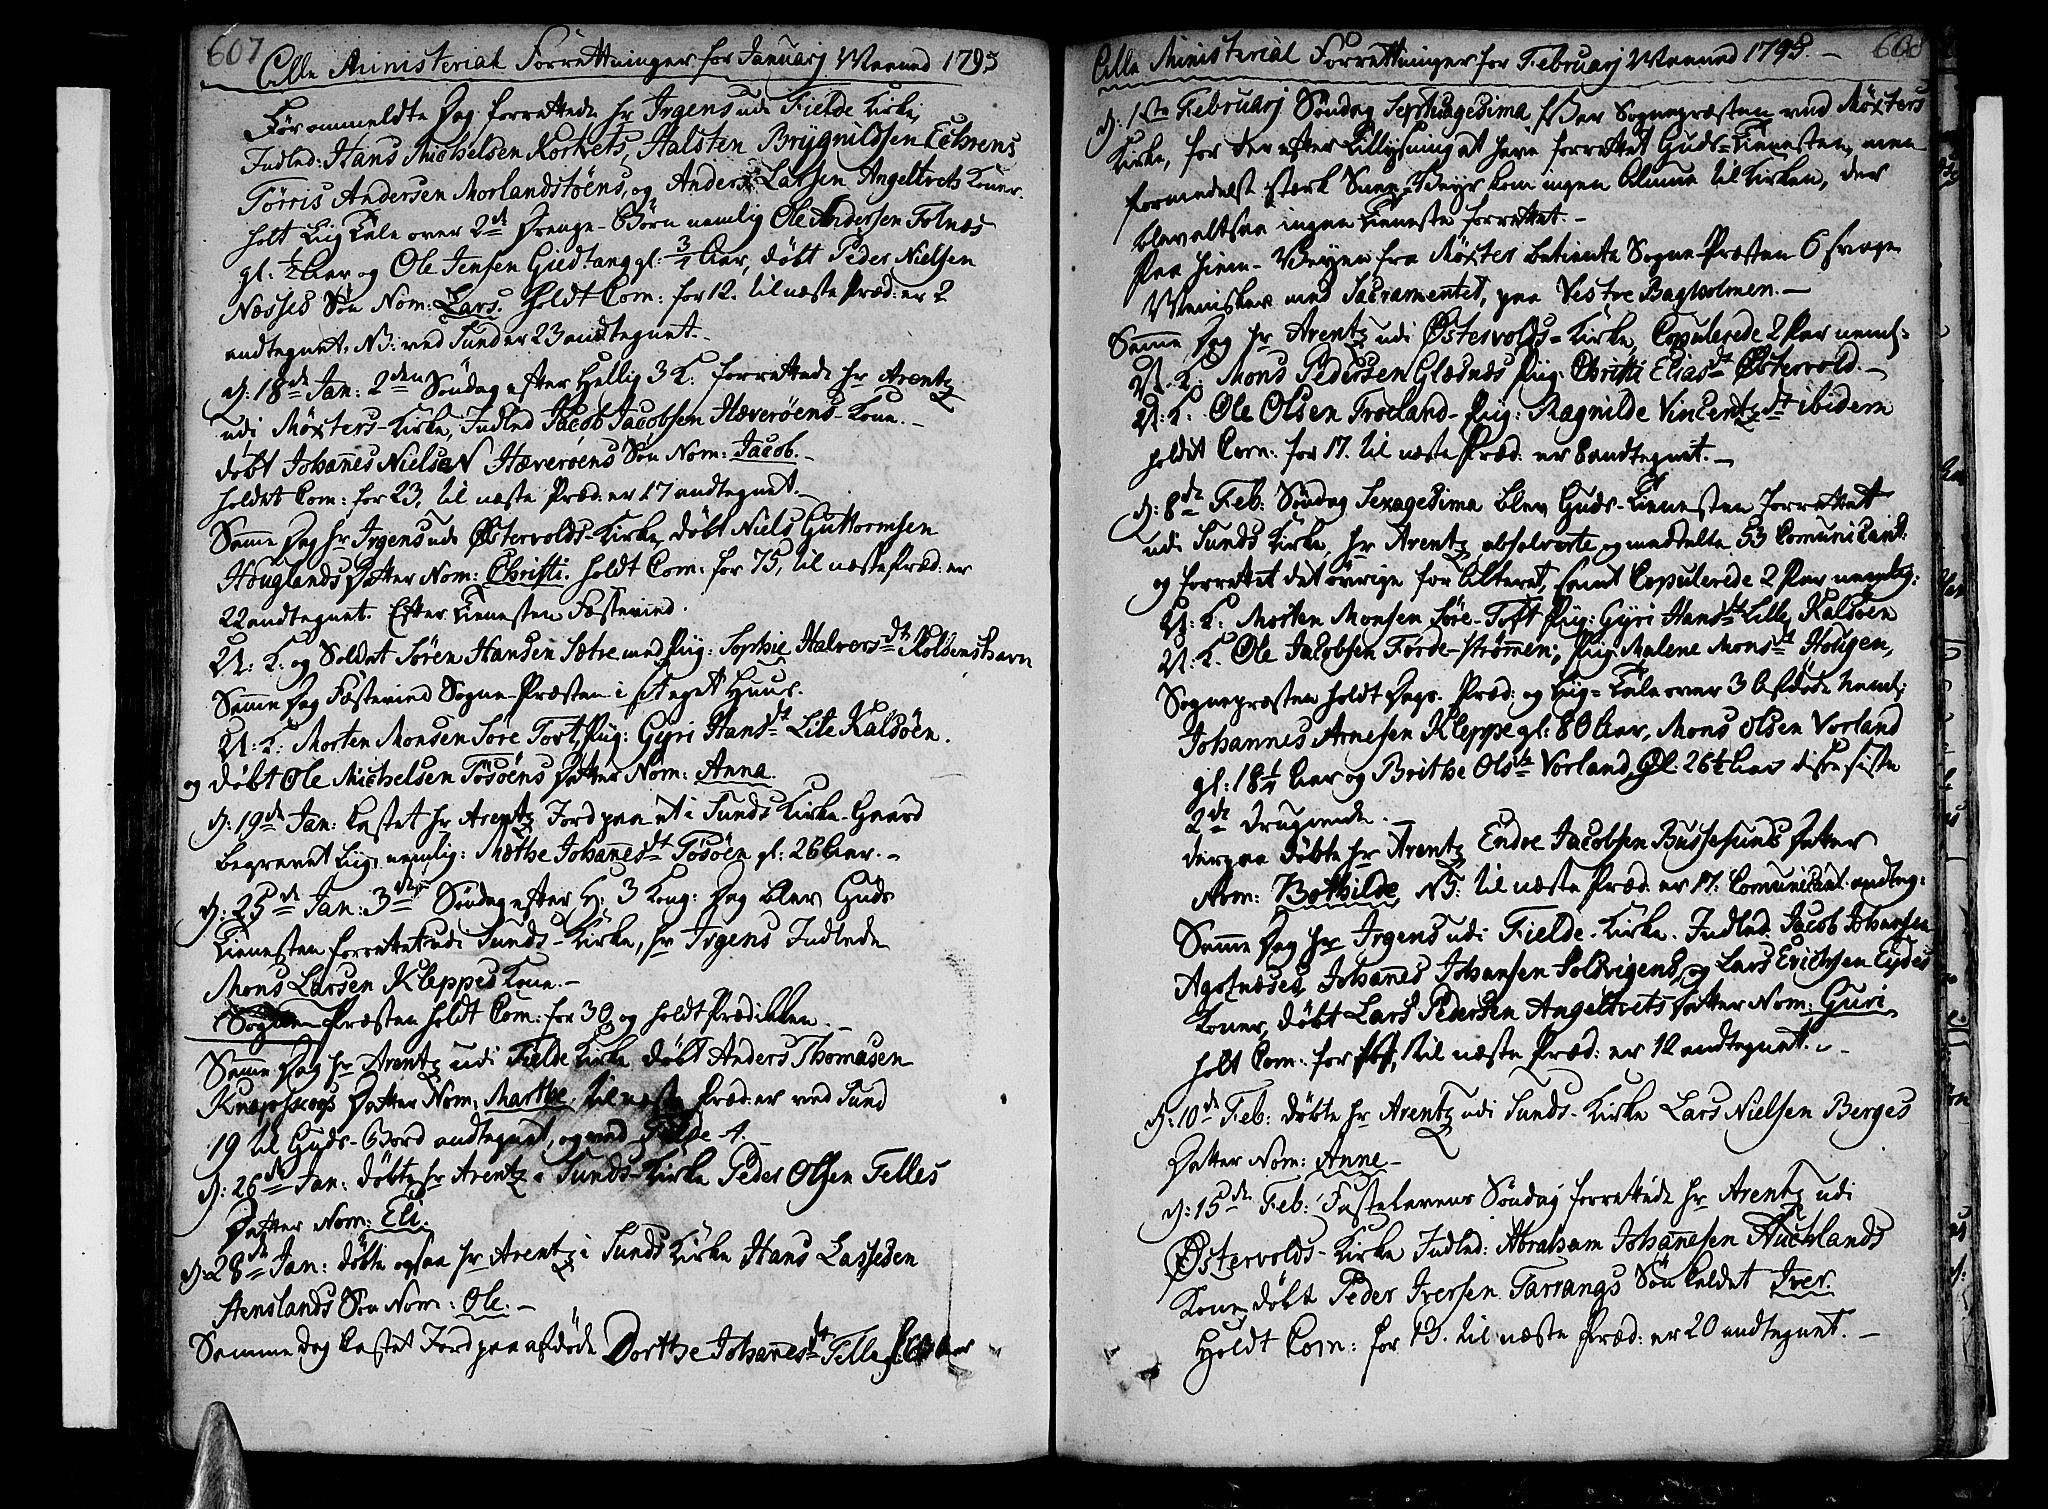 607
Alle Ministerial Forrettninger for Januarj Maaned 1795
Før ommeldte Dag forrettede hr Irgens udi Fielde Kirke,
Indled: Hans Michelsen Korvets, Halsten Brÿgnildsen Echrens
Tørris Andersen Morlandstøens, og Anders Larsen Angeltvets Koner.
holt Liig Tale over 2de Drenge-Børn nemlig Ole Andersen Tolnæs
gl: ½ Aar og Ole Jensen Giedtang gl: ¾ Aar, døbt Peder Nielsen
Næsses Søn Nom: Lars. holdt Com: for 12. til næste Præd: er 2
andtegnet. NB: ved Sund er 23 andtegnet.
D: 18de Jan: 2den Søndag efter Hellig 3 K: forrettede hr Arentz
udi Møxters-Kirke, Indled Jacob Jacobsen Hæverøens Kone.
døbt Johannes Nielsen Hæverøens Søn Nom: Jacob.
holdet Com: for 23, til næste Præd: er 17 andtegnet.
Samme Dag hr Irgens udi Østervolds-Kirke, døbt Niels Guttormsen
Houglands Datter Nom: Christi. holdt Com: for 75, til næste Præd: er
22 andtegnet. Efter Tienesten Fæstevied.
U: K: og Soldat Søren Hansen Sætre med Pig: Sophie Halvorsdt Kolbenshavn
Samme Dag Fæstevied Sogne-Præsten i sit eget Huus.
U: K: Morten Monsen Søre Toft, Pig: Gyri Hansdt Lite Kalsøen.
og døbt Ole Michelsen Tøsøens Datter Nom: Anna.
D: 19de Jan: kastet hr Arentz Jord paa et i Sunds Kirke-Gaard
begravet Liig, nemlig: Mæthe Johannesdt Tøsøen gl: 26 Aar.
D: 25de Jan: 3die Søndag efter H: 3 Kong: Dag blev Guds
Tienesten forrettet udi Sunds-Kirke, hr Irgens Indlede
Mons Larsen Kleppes Kone.
Sogne Præsten holdt Com: for 30 og holdt Prædikken.
Samme Dag hr Arentz udi Fielde Kirke døbt Anders Thomasen
Knapskogs Datter Nom: Marthe, til næste Præd: er ved Sund
19 til Guds-Bord andtegnet, og ved Fielde 4.
D: 26de Jan: døbte hr Arentz i Sunds-Kirke Peder Olsen Telles
Datter Nom: Eli.
D: 28de Jan: døbte ogsaa hr Arentz i Sunds Kirke Hans Lassesen
Stenslands Søn Nom: Ole.
Samme dag kastet Jord paa afdøde Dorthe Johannesdt Telle
608
Alle Ministerial Forrettninger for Februarj Maaned 1795.
D: 1ste Februarj Søndag Septuagesima, Var Sognepræsten ved Møxters
Kirke, for der efter Tillysning at have forrettet Guds-Tienesten, men
formedelst stærk Snee-Veyr kom ingen Almue til Kirken, der
blev altsaa ingen Tieneste forrettet.
Paa Hiem-Veyen fra Møxter betiente Sogne-Præsten 6 svage
Mennisker med Sacramentet, paa Vestre Bagholmen.
Samme Dag hr Arentz udi Østervolds-Kirke, Copulerede 2 Par neml:
U: K: Mons Pedersen Glæsnæs Pig: Christi Eliasdt Østervold.
U: K: Ole Olsen Trocland Pig: Ragnilde Vincentzdt ibidem
holdet Com: for 17. til næste Præd: er 8 andtegnet.
D: 8de Feb: Søndag Sexagesima blev Guds-Tienesten forrettet
udi Sunds Kirke, hr Arentz absolverte og meddelte 53 Comunicant:
og forrettet det øvrige for Alteret, samt Copulerede 2 Par nemlig:
U: K: Morten Monsen Søre-Toft Pig: Gyri Hansdt Lille Kalsøen
U: K: Ole Jacobsen Førde-strømmen, Pig: Malene Monsdt Hougen,
Sognepræsten holdt Dags Præd: og Liig-Tale over 3 Afdøde neml:
Johannes Arnesen Kleppe gl: 80 Aar, Mons Olsen Vorland
gl: 18¼ Aar og Brithe Olsdt Vorland gl: 26½ Aar disse siste
2de druknede.
derpaa døbte hr Arentz Endre Jacobsen Bussesunds Datter
Nom: Bothilde, NB: til næste Præd: er 17: Comunicant: andteg:
Samme Dag hr Irgens udi Fielde-Kirke. Indled: Jacob Johansen
Agotnæses, Johanes Johansen Solsvigens, og Lars Erichsen Eydes
Koner, døbt Lars Pedersen Angeltvets Datter Nom: Guri
holt Com: for til næste Præd: er 12 andtegnet.
D: 10de Feb: døbte hr Arentz udi Sunds-Kirke Lars Nielsen Berges
Datter Nom: Anne
D: 15de Feb: Fastelavens Søndag forrettede hr Arentz udi
Østervolds-Kirke Indled: Abraham Johannesen Auchlands
Kone, døbt Peder Iversen Tarrangs Søn kaldet Iver.
Holdt Com: for 13. til næste Præd: er 20 andtegnet.